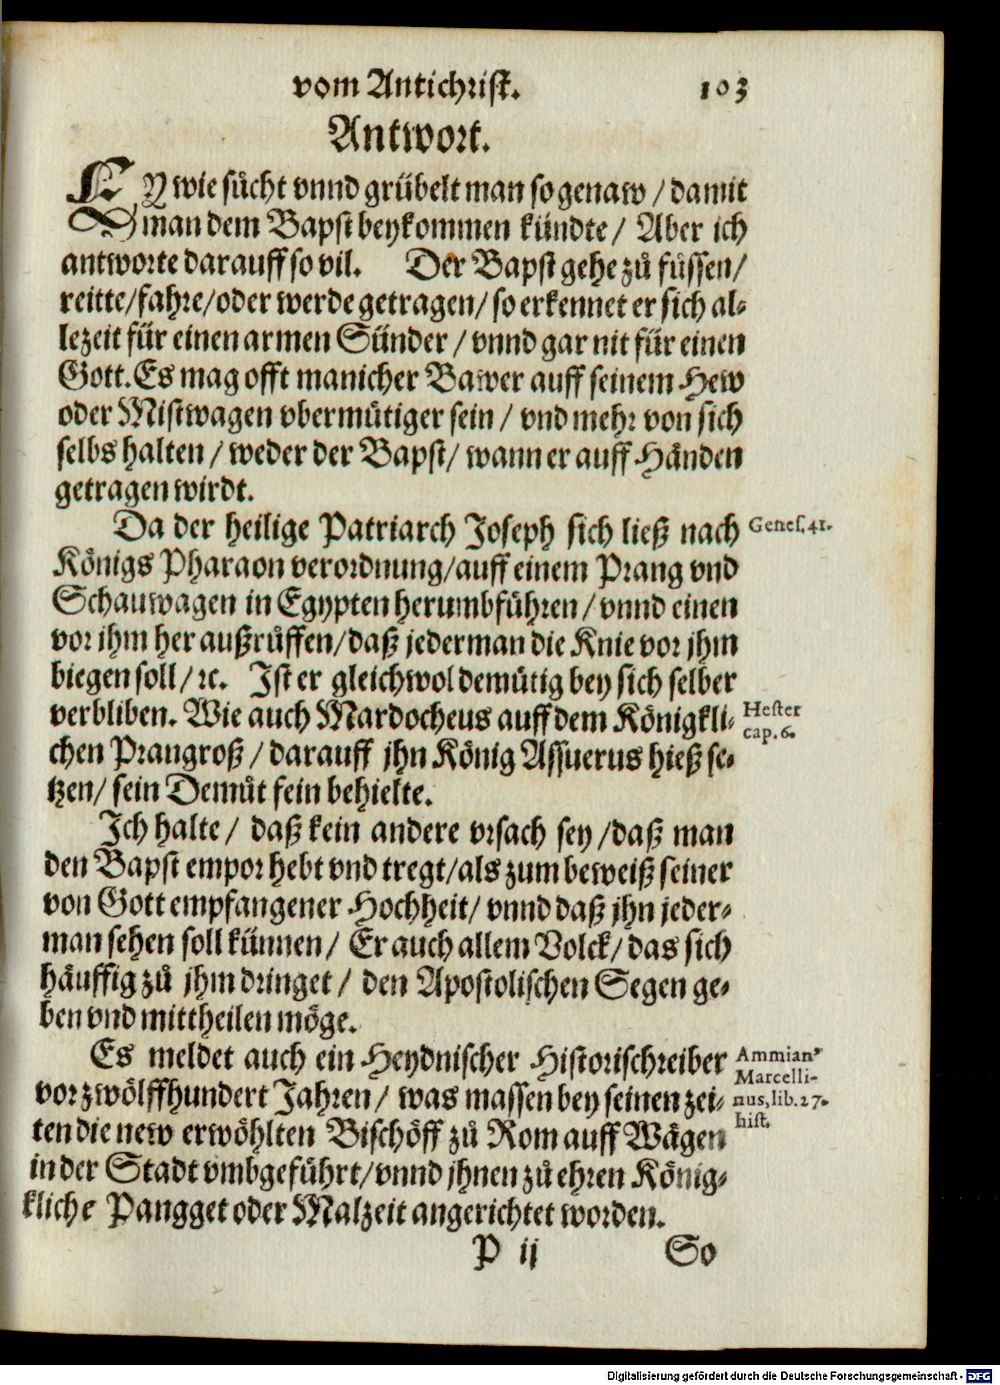 vom Antichrist. 103
Antwort.
EY wie sůcht vnnd grübelt man so genaw / damit
man dem Bapst beykommen kündte / Aber ich
antworte darauff so vil. Der Bapst gehe zů füssen /
reitte / fahre / oder werde getragen / so erkennet er sich al-
lezeit für einen armen Sünder / vnnd gar nit für einen
Gott. Es mag offt manicher Bawer auff seinem Hew
oder Mistwagen vbermütiger sein / vnd mehr von sich
selbs halten / weder der Bapst / wann er auff Händen
getragen wirdt.
Da der heilige Patriarch Joseph sich ließ nach Genes. 41.
Königs Pharaon verordnung / auff einem Prang vnd
Schauwagen in Egypten herumbführen / vnnd einen
vor ihm her außrůffen / daß jederman die Knie vor jhm
biegen soll / ꝛc. Ist er gleichwol demütig bey sich selber
verbliben. Wie auch Mardocheus auff dem Königkli- Hester
chen Prangroß / darauff jhn König Assuerus hieß se- cap. 6.
tzen / sein Demůt fein behielte.
Ich halte / daß kein andere vrsach sey / daß man
den Bapst empor hebt vnd tregt / als zum beweiß seiner
von Gott empfangener Hochheit / vnnd daß jhn jeder-
man sehen soll künnen / Er auch allem Volck / das sich
häuffig zů jhm dringet / den Apostolischen Segen ge-
ben vnd mittheilen möge.
Es meldet auch ein Heydnischer Historischreiber Ammian⁹
vor zwölffhundert Jahren / was massen bey seinen zei- Marcelli-
ten die new erwöhlten Bischöff zů Rom auff Wägen nus, lib. 27.
in der Stadt vmbgeführt / vnnd jhnen zů ehren König- hist.
kliche Pangget oder Malzeit angerichtet worden.
P ij So
Digitalisierung gefördert durch die Deutsche Forschungsgemeinschaft - DFG